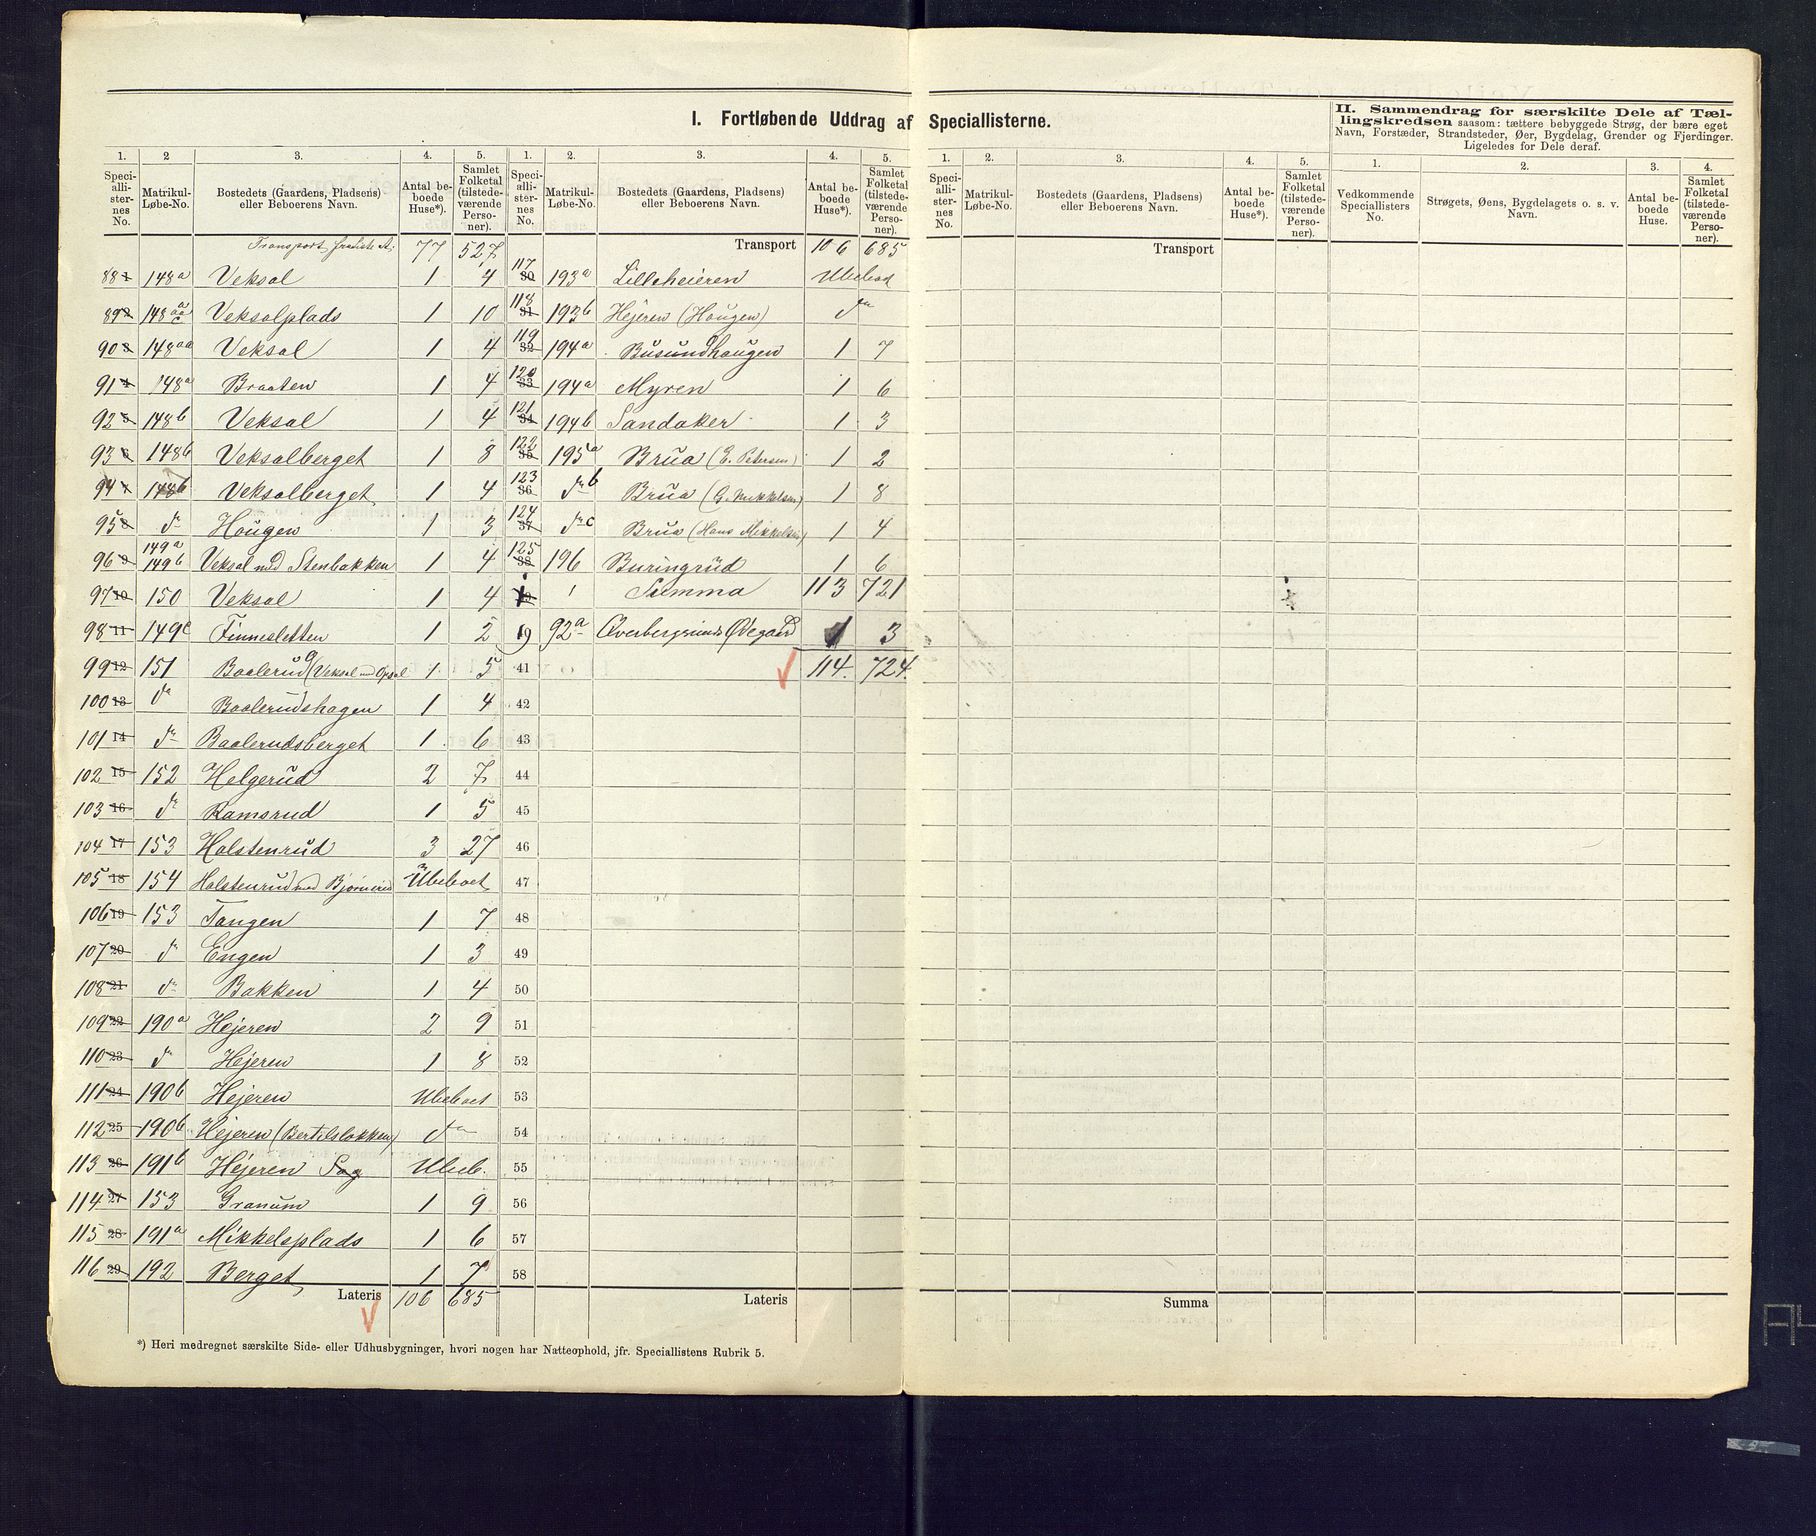 I. Fortløbende Uddrag af Speciallisterne.
II. Sammendrag for særskilte Dele af Tæl-
lingskredsen saasom: tættere bebyggede Strøg, der bære eget
Navn, Forstæder, Strandsteder, Øer, Bygdelag, Grender og Fjerdinger.
Ligeledes for Dele deraf.
1. 2 3. 4. 5.
Speci-alli-ster-nes No. Matrikul-Løbe-No. Bostedets (Gaardens, Pladsens) eller Beboerens Navn. Antal be-boede Huse*). Samlet Folketal (tilstede-værende Perso-ner).
Transport fra 77 527
88 1 148a Veksal 1 4
89 2 148aa c Veksalplads 1 10
90 3 148aa Veksal 1 4
91 4 148a Braaten 1 4
92 5 148b Veksal 1 4
93 6 148b Veksalberget 1 8
94 7 148b Veksalberget 1 4
95 8 do Haugen 1 3
96 9 149a 149b Veksal med Stenbakken 1 4
97 10 150 Veksal 1 4
98 11 149c Finnesletten 1 2
99 12 151 Baalerud (Veksal med Opsal 1. 5
100 13 do Baalerudshagen 1 4
101 14 do Baalerudsberget 1. 6
102 15 152 Helgerud 2 7
103 16 do Ramsrud 1 5
104 17 153 Halstenrud 3 27
105 18 154 Halstenrud med Ubeboet
106 19 153 Tangen 1 7
107 20 do Engen 1 3
108 21 do Bakken 1 4
109 22 190a Hejeren 2 9
110 23 do Hejeren 1 8
111 24 190b Hejeren Ubeboet
112 25 190b Hejeren (Bertilsløkken) do
113 26 191b Hejeren Sag Ubeb.
114 27 153 Granum 1 9
115 28 191a Mikkelsplads 1 6
116 29 192 Berget 1 7
Lateris 106 685
*) Heri medregnet særskilte Side- eller Udhusbygninger, hvori nogen har Natteophold, jfr. Speciallistens Rubrik 5.
1. 2. 3. 4. 5.
Speci-alli-ster-nes No. Matrikul-Løbe-No. Bostedets (Gaardens, Pladsens) eller Beboerens Navn. Antal be-boede Huse*). Samlet Folketal (tilstede-værende Perso-ner).
Transport 106 685
117 30 193a Lilleheieren Ubeboet
118 31 193b Hejeren (Haugen) do
119 32 194a Busundhaugen 1 7
120 33 194a Myren 1 6
121 34 194b Sandaker 1 3
122 35 195a Brua (E. Petersen) 1 2
123 36 do b Brua (G. Mikkelsen) 1 8
124 37 do c Brua (Hans Mikkelsen) 1 4
125 38 196 Buringrud 1 6
Summa 113 721
19 92a Overbergsunds Ødegaard 1 3
41 114. 724.
42
43
44
45
46
47
48
49
50
51
52
53
54
55
56
57
58
Lateris
1. 2. 3. 4. 5.
Speci-alli-ster-nes No. Matrikul-Løbe-No. Bostedets (Gaardens, Pladsens) eller Beboerens Navn. Antal be-boede Huse*). Samlet Folketal (tilstede-værende Perso-ner).
Transport
Summa
1. 2. 3. 4.
Vedkommende Speciallisters No. Strøgets, Øens, Bygdelagets o. s. v. Navn. Antal be-boede Huse. Samlet Folketal (tilstede-værende Perso-ner).